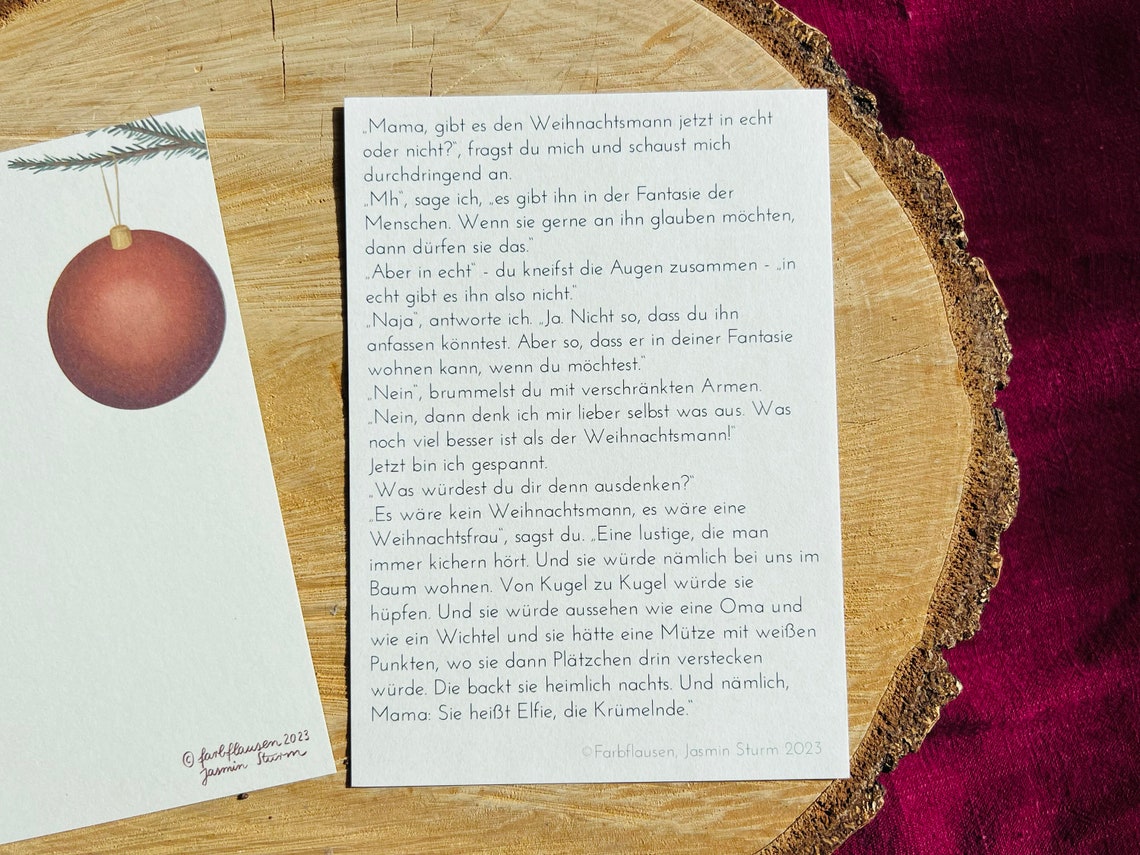 „Mama, gibt es den Weihnachtsmann jetzt in echt
oder nicht?“, fragst du mich und schaust mich
durchdringend an.
„Mh“, sage ich, „es gibt ihn in der Fantasie der
Menschen. Wenn sie gerne an ihn glauben möchten,
dann dürfen sie das.“
„Aber in echt“ - du kneifst die Augen zusammen - „in
echt gibt es ihn also nicht.“
„Naja“, antworte ich. „Ja. Nicht so, dass du ihn
anfassen könntest. Aber so, dass er in deiner Fantasie
wohnen kann, wenn du möchtest.“
„Nein“, brummelst du mit verschränkten Armen.
„Nein, dann denk ich mir lieber selbst was aus. Was
noch viel besser ist als der Weihnachtsmann!“
Jetzt bin ich gespannt.
„Was würdest du dir denn ausdenken?“
„Es wäre kein Weihnachtsmann, es wäre eine
Weihnachtsfrau“, sagst du. „Eine lustige, die man
immer kichern hört. Und sie würde nämlich bei uns im
Baum wohnen. Von Kugel zu Kugel würde sie
hüpfen. Und sie würde aussehen wie eine Oma und
wie ein Wichtel und sie hätte eine Mütze mit weißen
Punkten, wo sie dann Plätzchen drin verstecken
würde. Die backt sie heimlich nachts. Und nämlich,
Mama: Sie heißt Elfie, die Krümelnde.“
©Farbflausen, Jasmin Sturm 2023
© farbflausen 2023
Jasmin Sturm